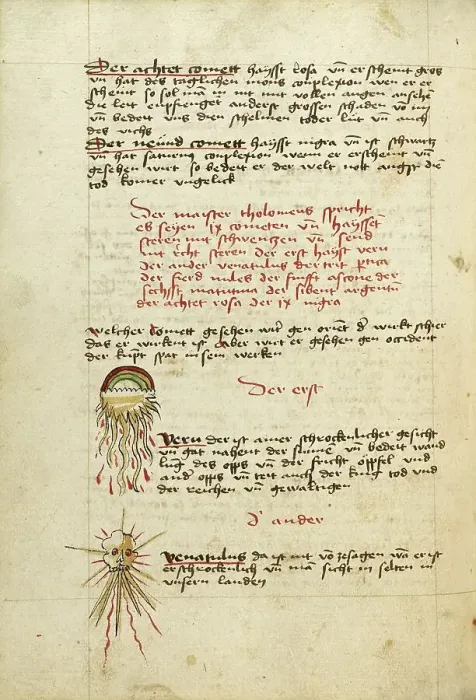 Der achtet comett haysst Rosa vn̄ er scheint gros
vn̄ hat des täglichen mons complexion wen er er
scheint so sol mā in nit mit vollen augen ansehen
die leit empfienget anderst grossen schaden vo im
vn̄ bedeit uns den schelmen toder lüt vn̄ auch
des vichs
Der neünd comett haysst nigra vn̄ ist schwartz
vn̄ hat saturnus complexion wenn er erscheint vn̄
gesehen wirt so bedeit er der welt nott angst die
tod komer ungelick
Der maister tholomeus spricht
es seyen ix cometen vn̄ haysset
steren mit schwentzen vn̄ send
nit recht steren der erst hayst veru
der ander venatulus der trit ptica
der fierd miles der fünfft ascone der
sechsst matutina der sibent argentū
der achtet rosa der ix nigra
Welcher comett gesehen wirt gen orient d' wirkt schier
das er wirkent ist aber wirt er gesehen gen occident
der kūpt spat in sein werken
Der erst
Veru der ist ainer schrockenlicher gesicht
vn̄ gat nahent der sunne vn̄ bedeit wand
lug des opffs vn̄ der fricht öpffel und
and' opffs vn̄ teit auch der küng tod und
der reichen vn̄ gewaltigen
D' ander
Venatulus da ist nit vō zesagen wā er ist
erschrockenlich vn̄ mā sicht in selten in
unsern landen